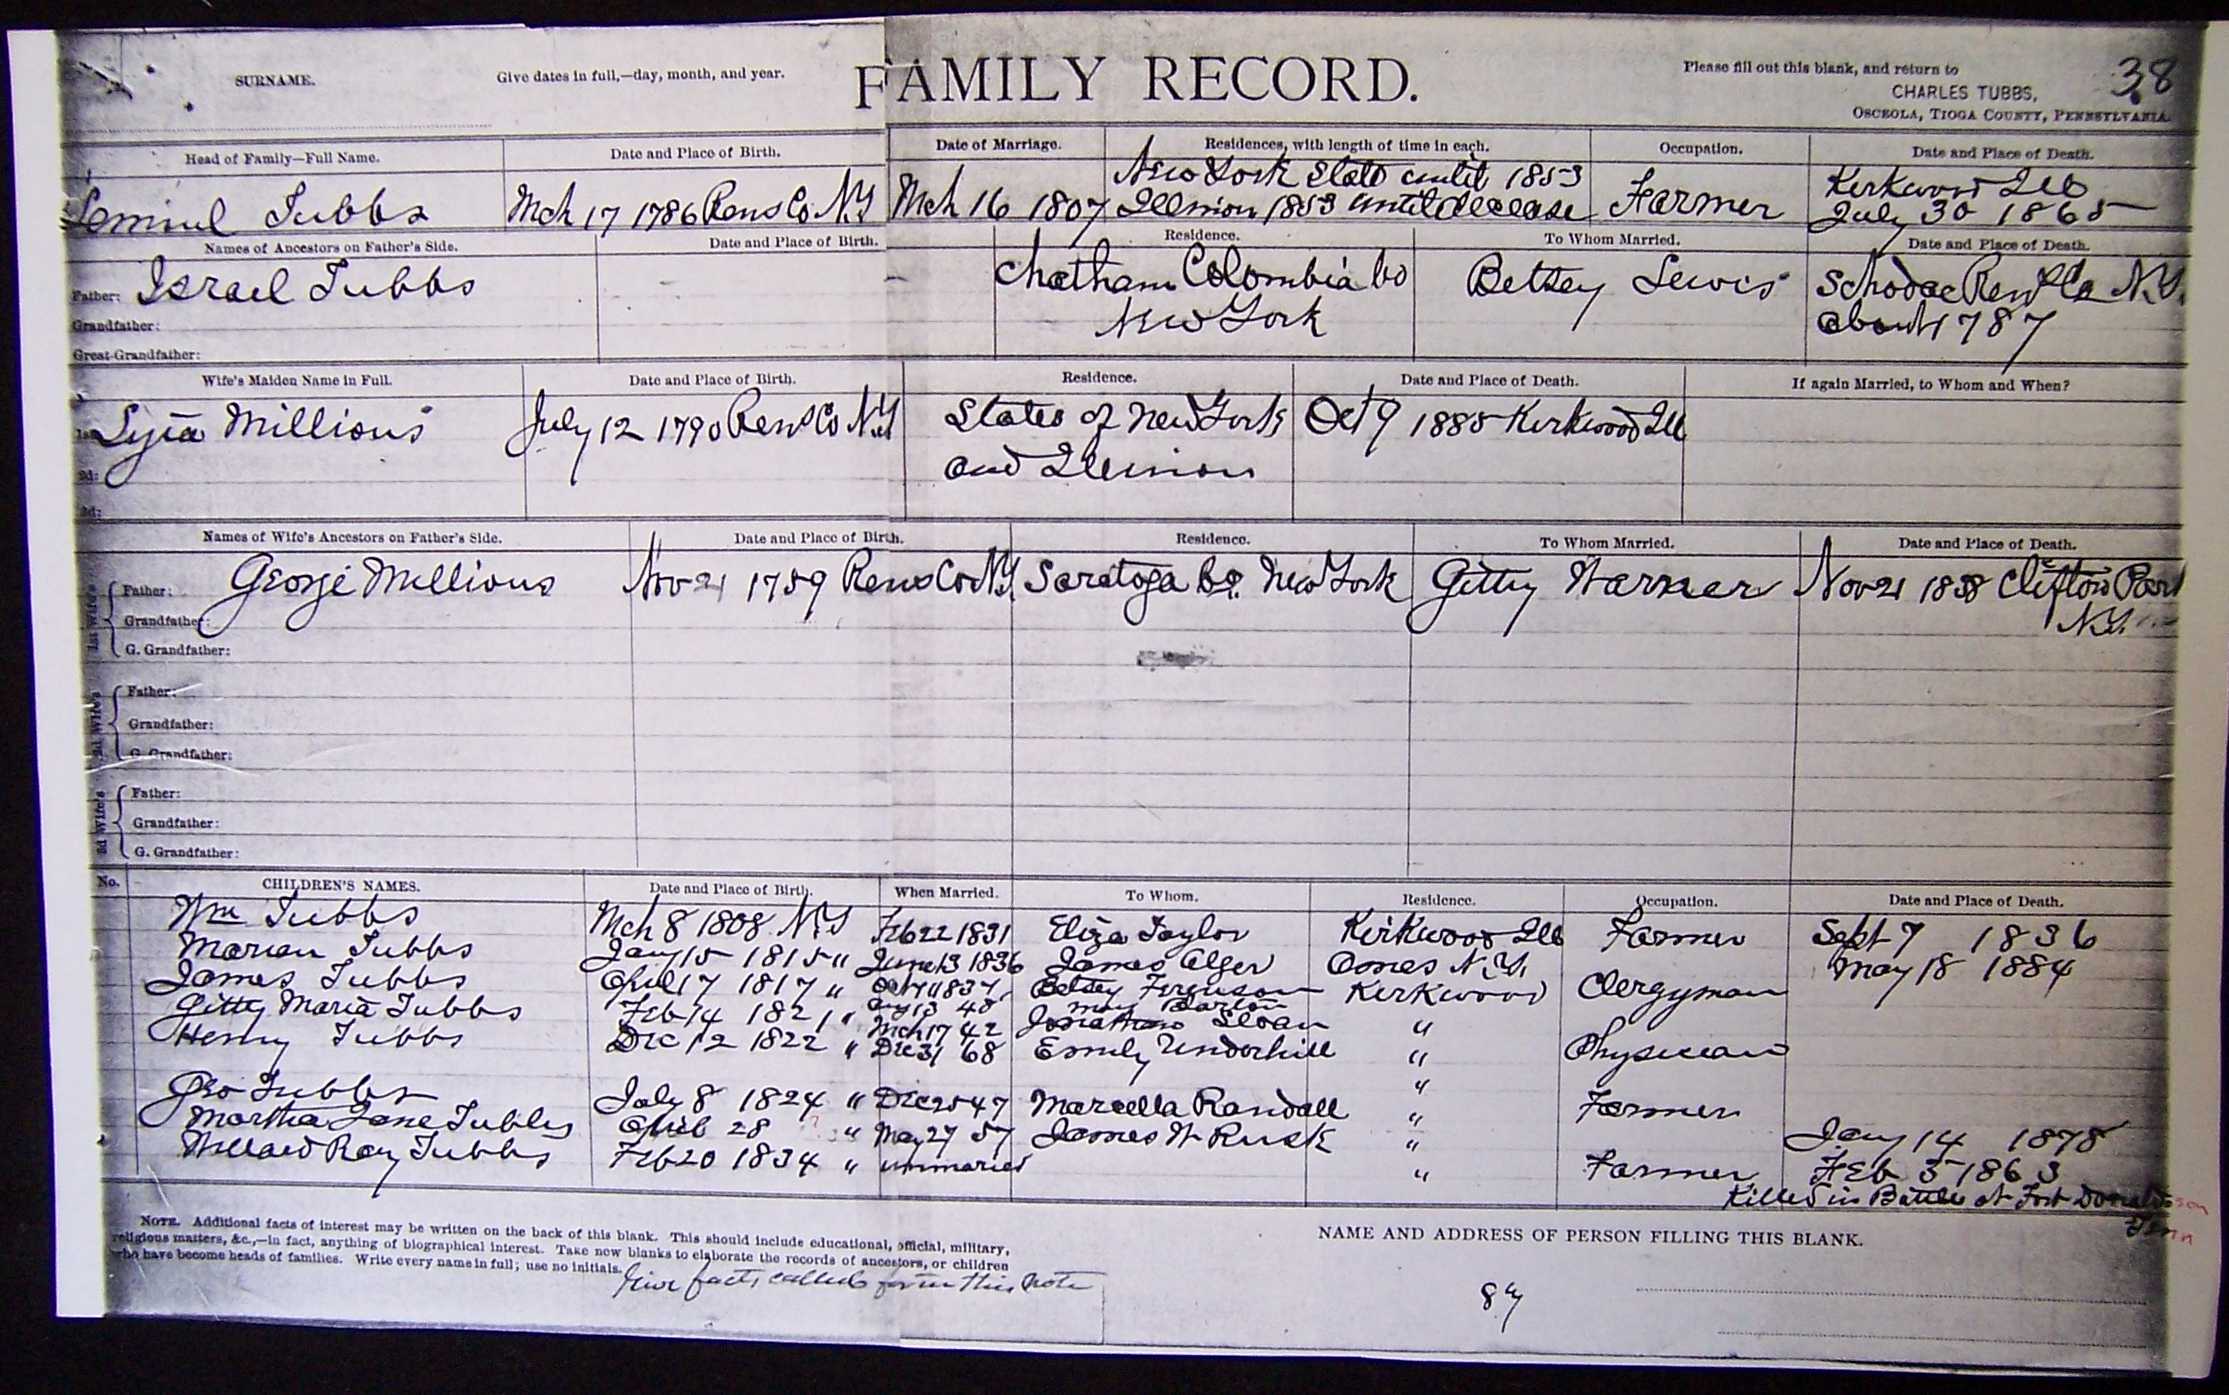 38
SURNAME. Give dates in full,—day, month, and year. FAMILY RECORD. Please fill out this blank, and return to
CHARLES TUBBS,
OSCEOLA, TIOGA COUNTY, PENNSYLVANIA.
Head of Family—Full Name. Date and Place of Birth. Date of Marriage. Residences, with length of time in each. Occupation. Date and Place of Death.
New York State until 1853 Kirkwood Ill
Lemiul Tubbs Mch 17 1786 Rens Co N.Y Mch 16 1807 Illinion 1853 until decease Farmer July 30 1865
Names of Ancestors on Father's Side. Date and Place of Birth. Residence. To Whom Married. Date and Place of Death.
Father: Israel Tubbs Chatham Colombia Co Betsey Lewis Schodac Rens Co N.Y.
Grandfather: New York about 1787
Great-Grandfather:
Wife's Maiden Name in Full. Date and Place of Birth. Residence. Date and Place of Death. If again Married, to Whom and When?
1st: Millious July 12 1790 Rens Co N.Y States of New York Oct 9 1885 Kirkwood Ill
2d: and Illinion
3d:
Names of Wife's Ancestors on Father's Side. Date and Place of Birth. Residence. To Whom Married. Date and Place of Death.
1st Wife's
Father: George Millious Nov 21 1759 Rens Co N.Y. Saratoga Co. New York Gitty Warner Nov 21 1838 Clifton Park
Grandfather: N.Y.
G. Grandfather:
2d Wife's
Father:
Grandfather:
G. Grandfather:
3d Wife's
Father:
Grandfather:
G. Grandfather:
No. CHILDREN'S NAMES. Date and Place of Birth. When Married. To Whom. Residence. Occupation. Date and Place of Death.
Wm Tubbs Mch 8 1808 N.Y Feb 22 1831 Eliza Taylor Kirkwood Ill Farmer Sept 7 1836
Marian Tubbs Jany 15 1815 " June 13 1836 James Alger Ames N.Y. May 18 1884
James Tubbs April 17 1817 " 1837 Betsey Ferguson Kirkwood Clergyman
Aug 13 48 Mary Barton
Gitty Maria Tubbs Feb 14 1821 " Mch 17 42 Jonathan Sloan "
Henry Tubbs Dec 12 1822 " Dec 31 68 Emily Underhill " Physician
"
Geo Tubbs July 8 1824 " Dec 25 47 Marcella Randall " Farmer
Martha Jane Tubbs April 28 ? " May 27 57 James H Rusk " Jany 14 1878
Willard Ray Tubbs Feb 20 1834 " unmaried " Farmer Feb 3 1863
Killed in Battle at Fort Donaldsson
Tenn
NOTE. Additional facts of interest may be written on the back of this blank. This should include educational, official, military,
religious matters, &c.,—in fact, anything of biographical interest. Take new blanks to elaborate the records of ancestors, or children
who have become heads of families. Write every name in full; use no initials.
Give facts called for in this note
NAME AND ADDRESS OF PERSON FILLING THIS BLANK.
87